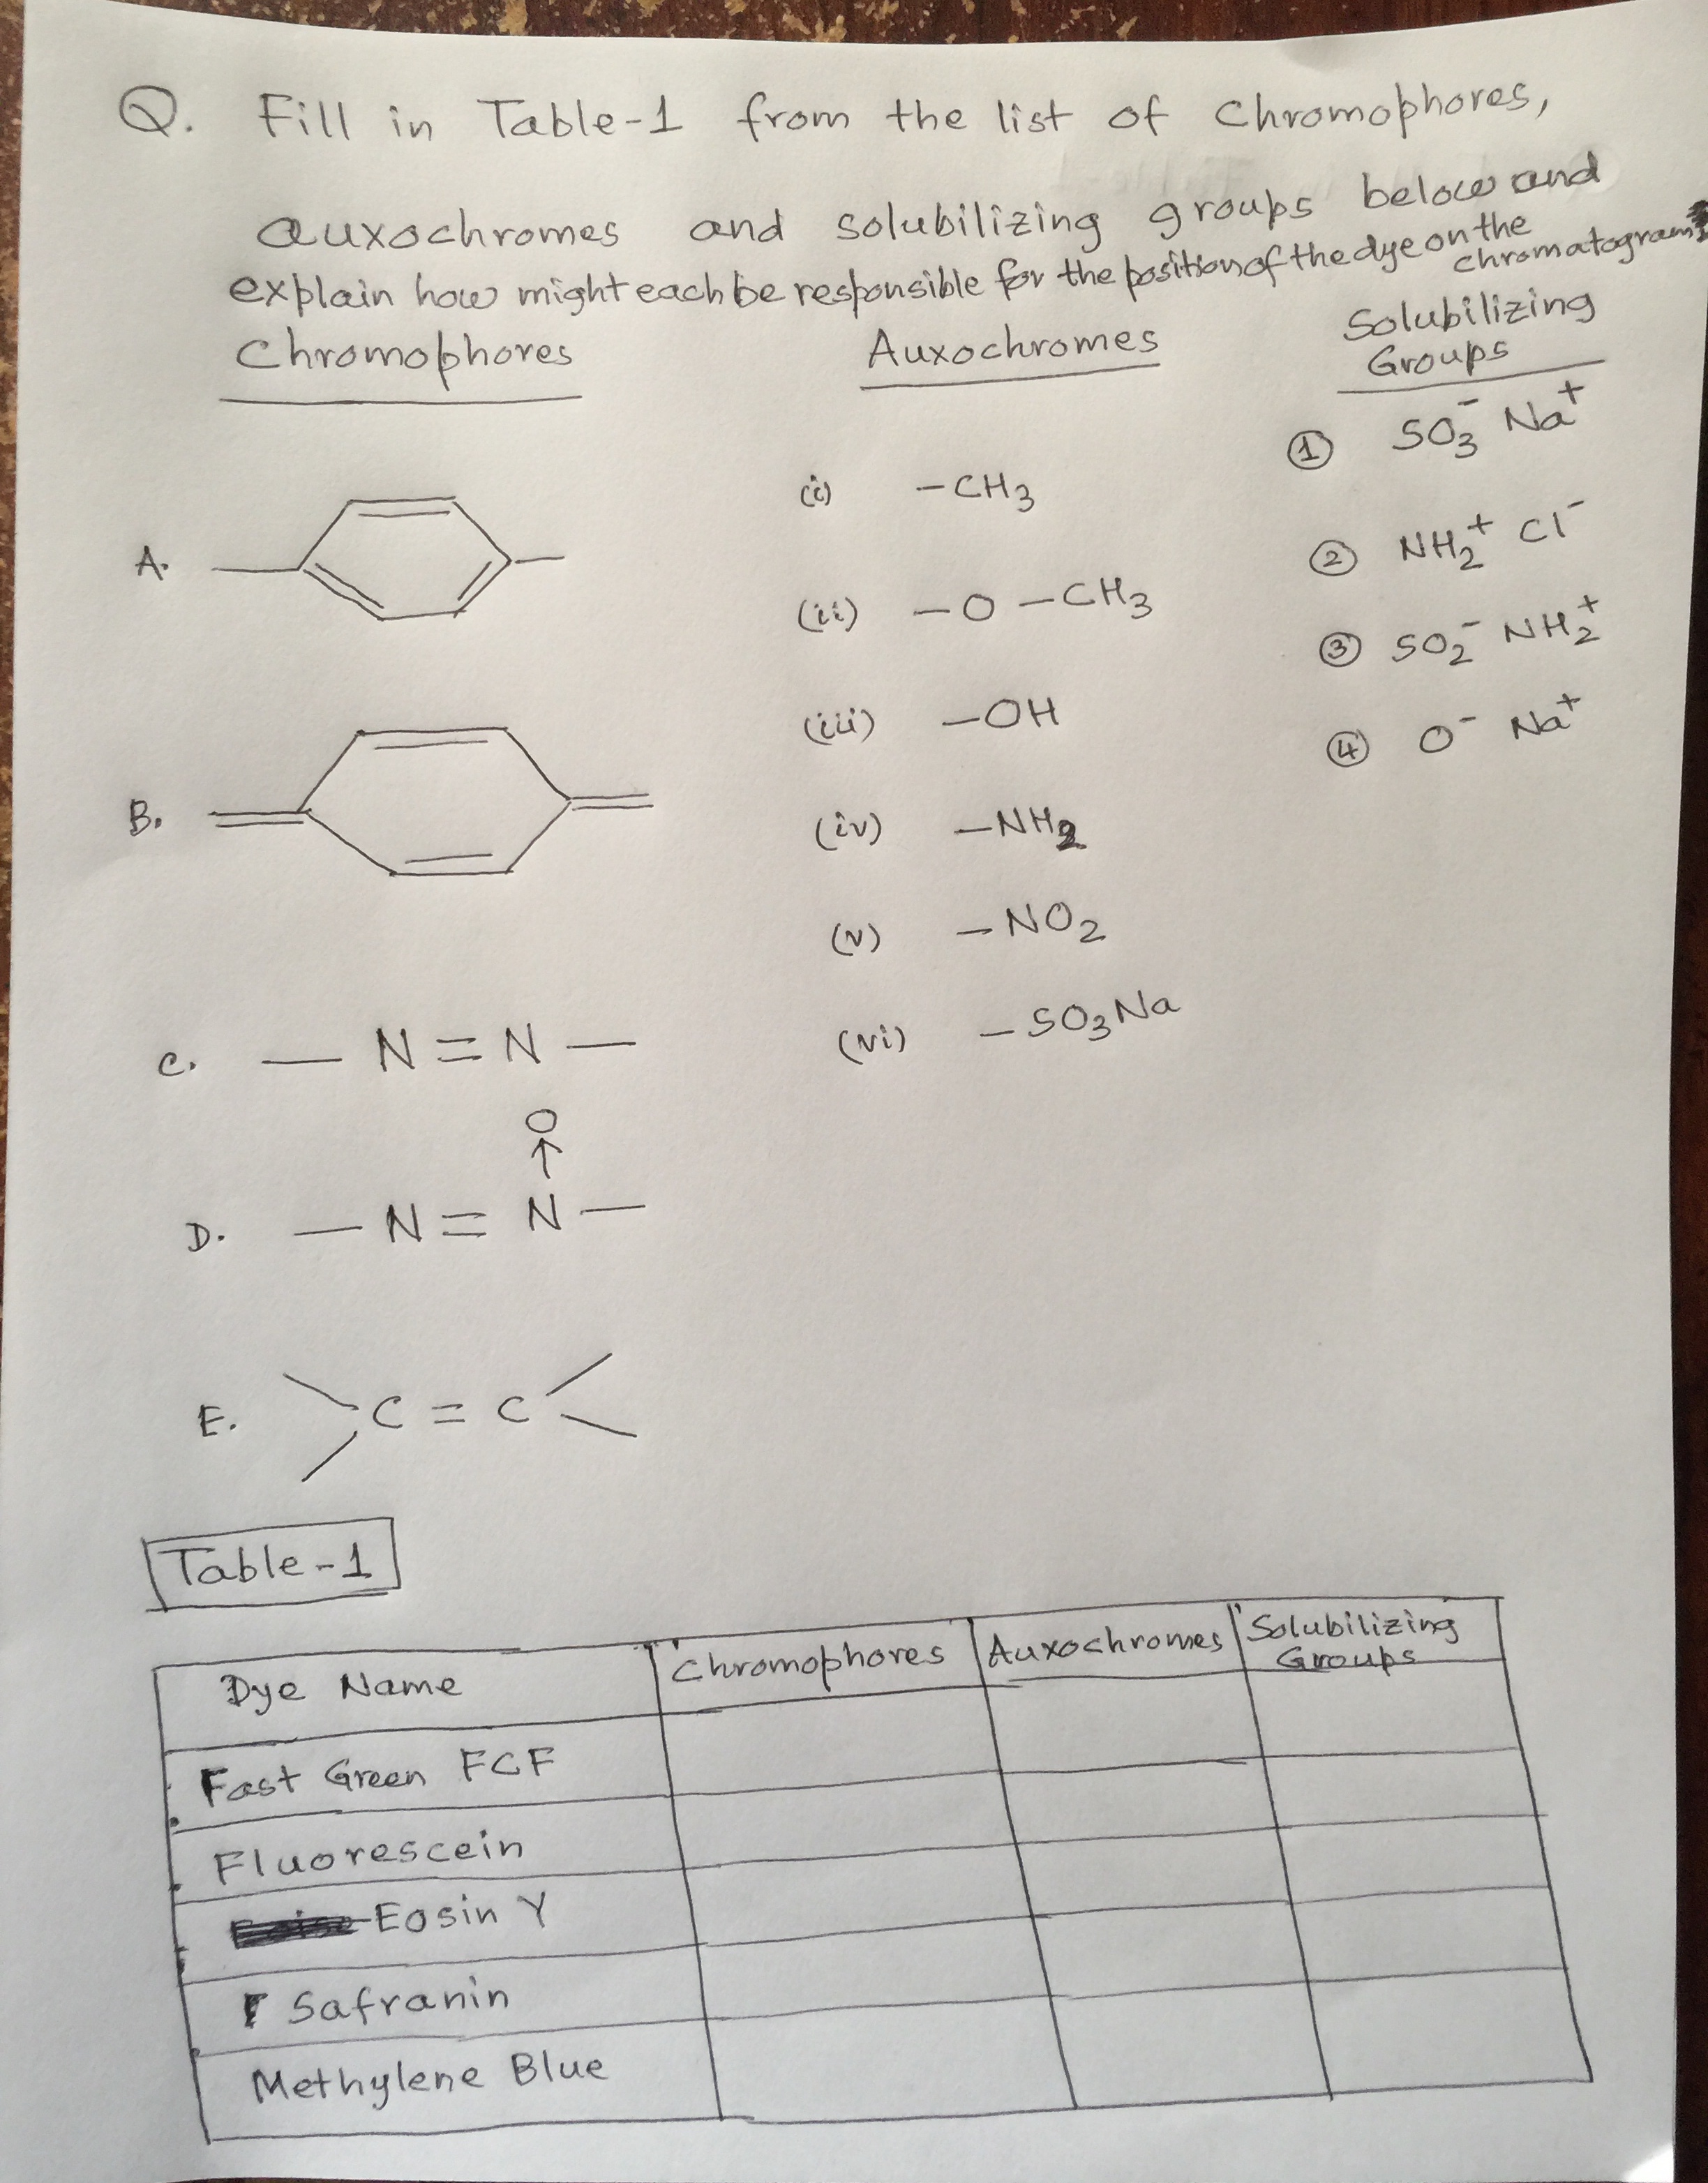 Q. Fill in Table-1 from the list of Chromophores,
auxochromes and solubilizing groups below and
explain how might each be responsible for the position of the dye on the
chromatogram?
Chromophores
Auxochromes
Solubilizing
Groups
A.
B.
C. — N = N —
O
↑
D. — N = N —
E. C = C
(i) - CH3
(ii) - O - CH3
(iii) - OH
(iv) - NH2
(v) - NO2
(vi) - SO3Na
① SO3- Na+
② NH2+ Cl-
③ SO2- NH2+
④ O- Na+
Table-1
Dye Name Chromophores Auxochromes Solubilizing
Groups
Fast Green FCF
Fluorescein
Eosin Y
Safranin
Methylene Blue